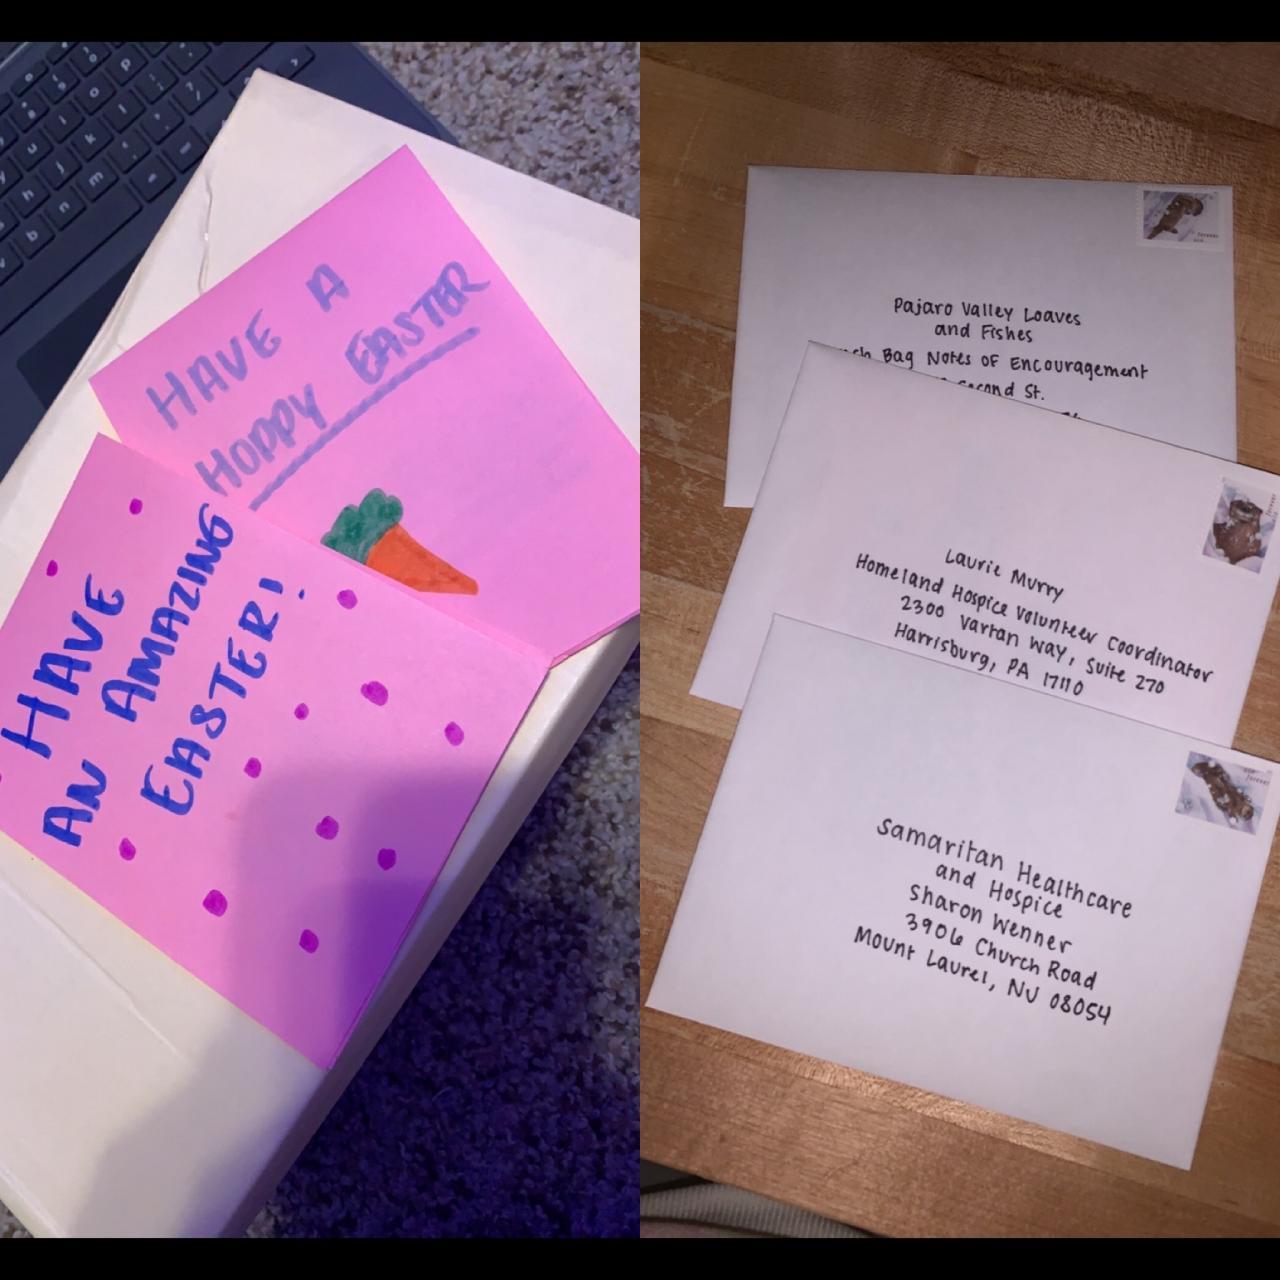 HAVE A
HOPPY EASTER
HAVE
AN AMAZING
EASTER!
Pajaro Valley Loaves
and Fishes
Bag Notes of Encouragement
Second St.
Laurie Murry
Homeland Hospice Volunteer Coordinator
2300 Vartan Way, Suite 270
Harrisburg, PA 17110
Samaritan Healthcare
and Hospice
Sharon Wenner
3906 Church Road
Mount Laurel, NJ 08054
forever
forever
forever